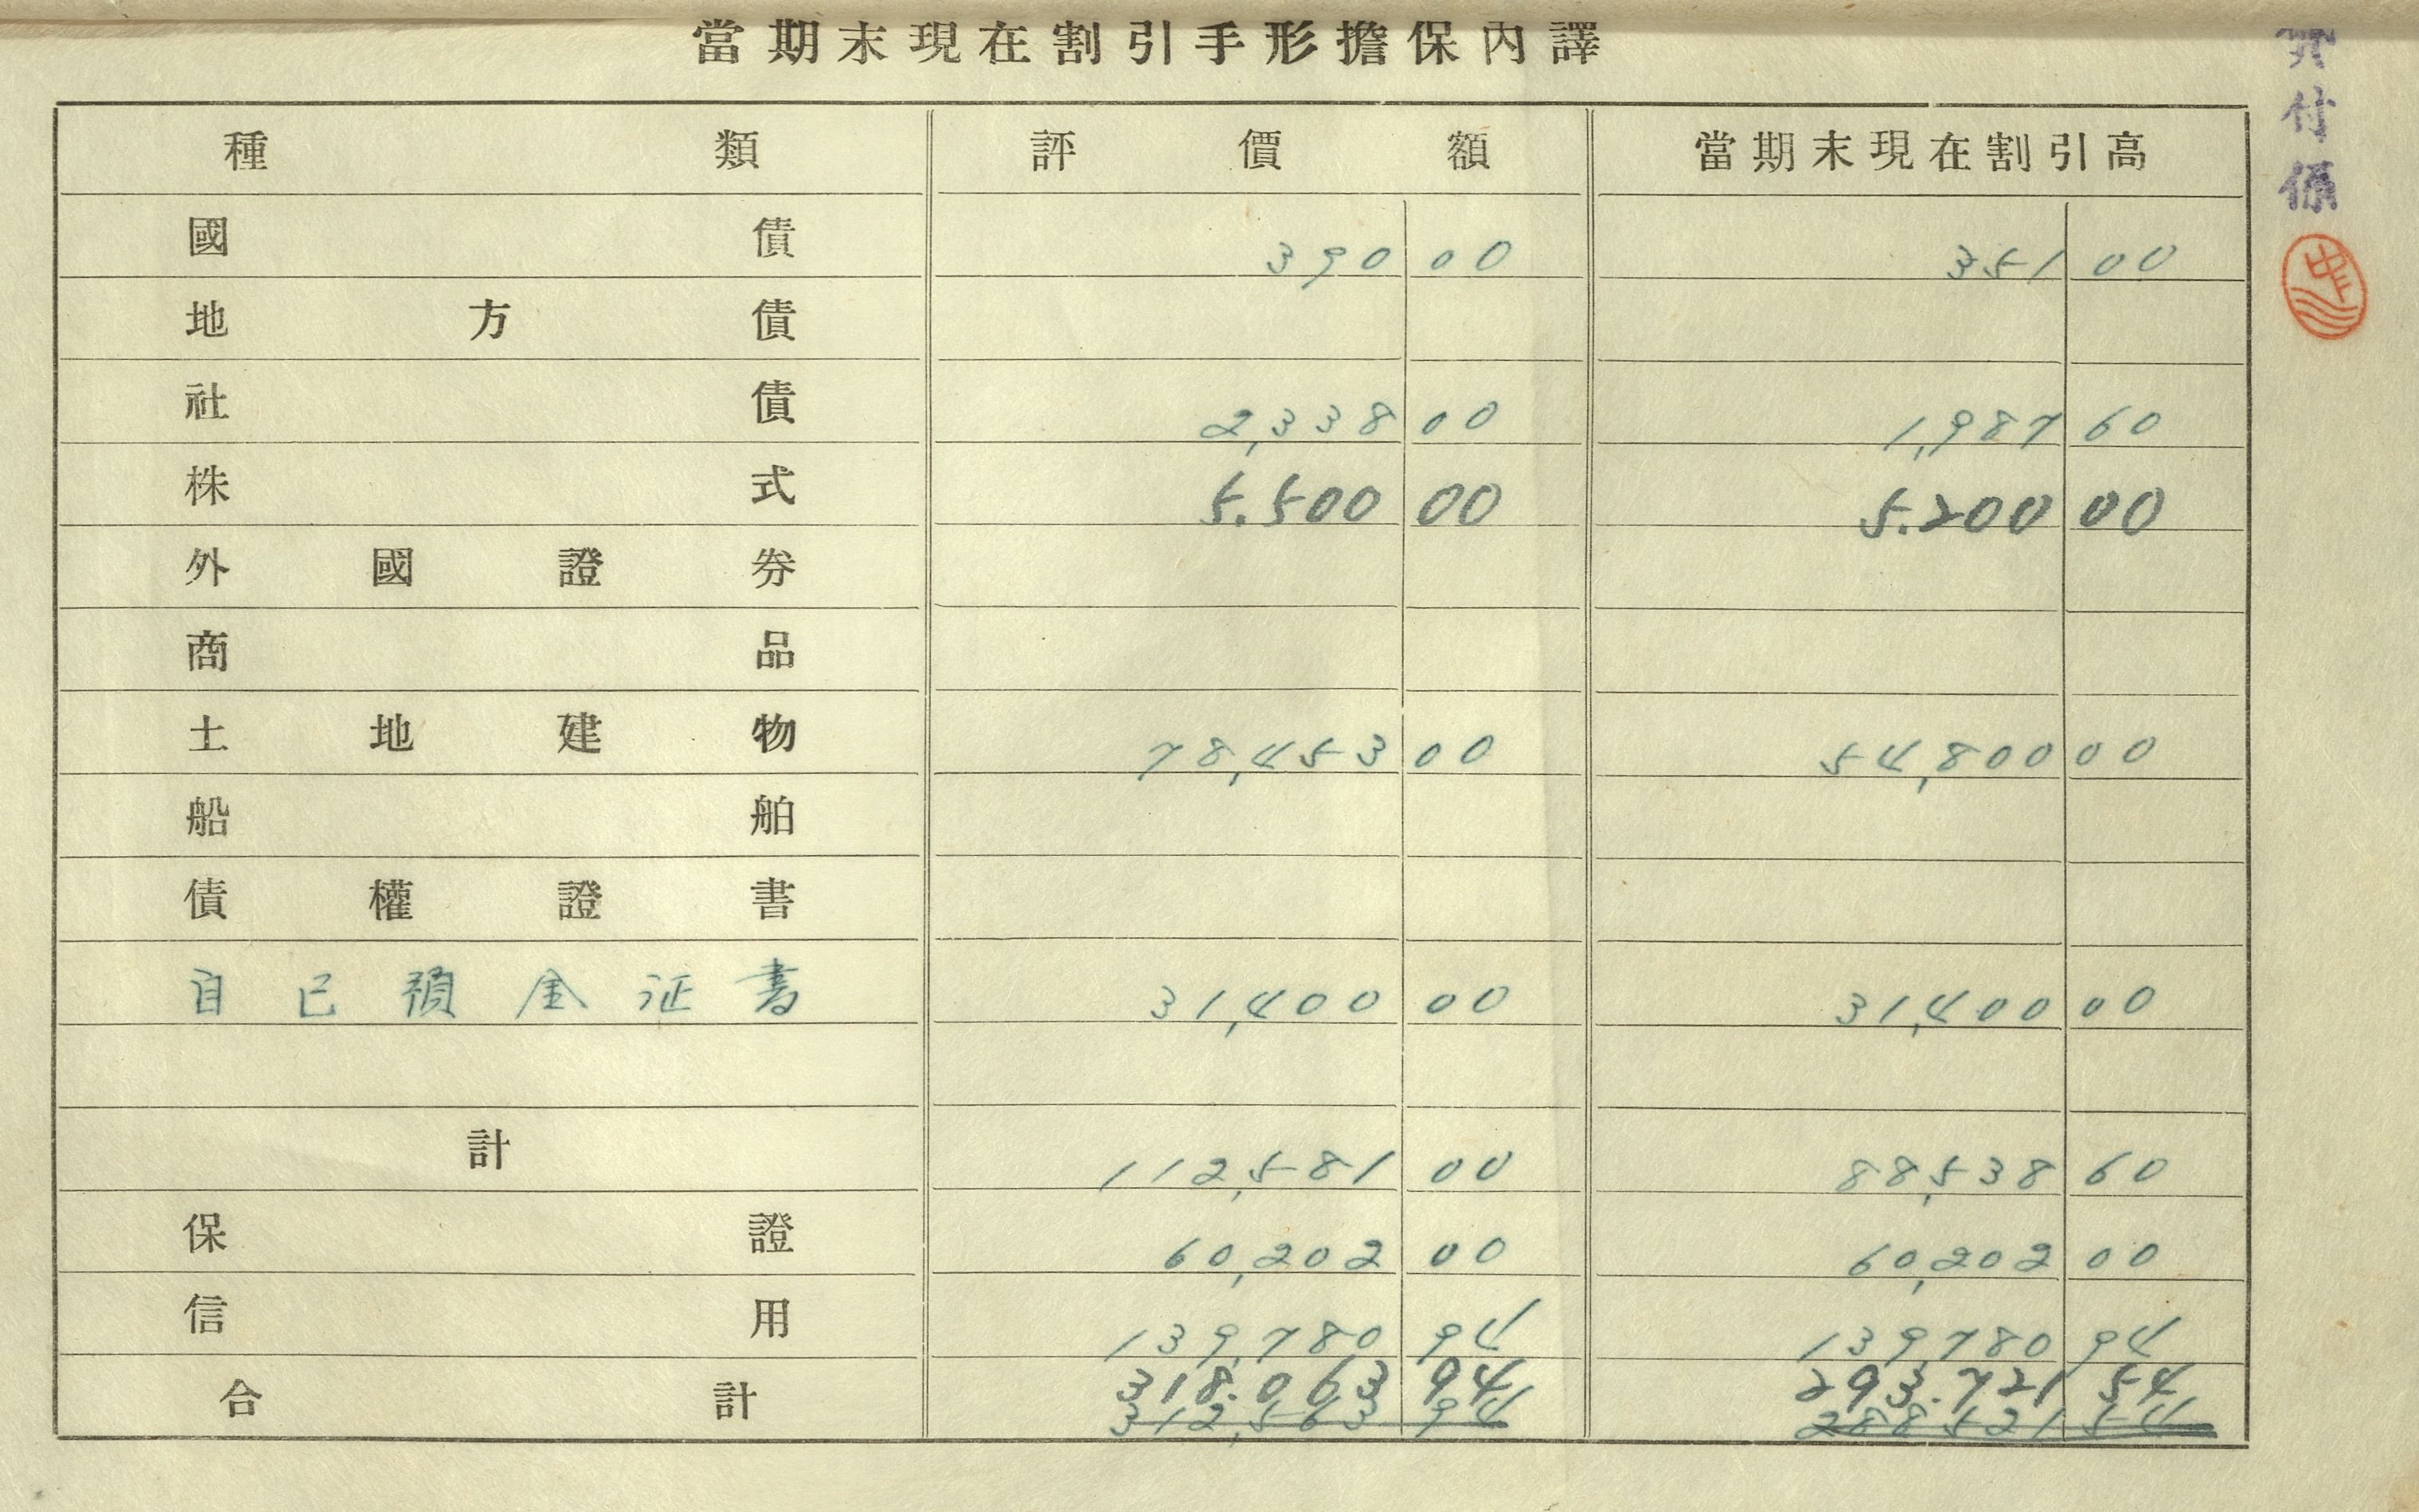 當期末現在割引手形擔保內譯
種類 評價額 當期末現在割引高
國債 390 00 351 00
地方債
社債 2,338 00 1,987 60
株式 5.500 00 5.200 00
外國證券
商品
土地建物 78,453 00 54,800 00
船舶
債權證書
自己預金证書 31,400 00 31,400 00
計 112,581 00 88,538 60
保證 60,202 00 60,202 00
信用 139,780 94 139,780 94
合計 318.063 94 293.721 54
312,563 94 288,521 54
付係